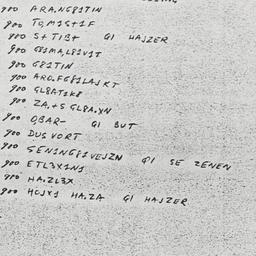 900 ARA.NG81TIN
900 TO,M1S+1F
900 S+TIB+ G1 HAJZER
900 G81MA,L81V1T
900 G81TIN
900 ARO.FG81LAJKT
900 GL8AT1K8
900 ZA,+S GL8A.XN
900 O,BAR- G1 BUT
900 DUS VORT
900 SEN1NG81VEJZN G1 SE ZENEN
900 ETL3X1N1
900 HA.ZL3X
900 HOJX1 HA.ZA G1 HAJZER